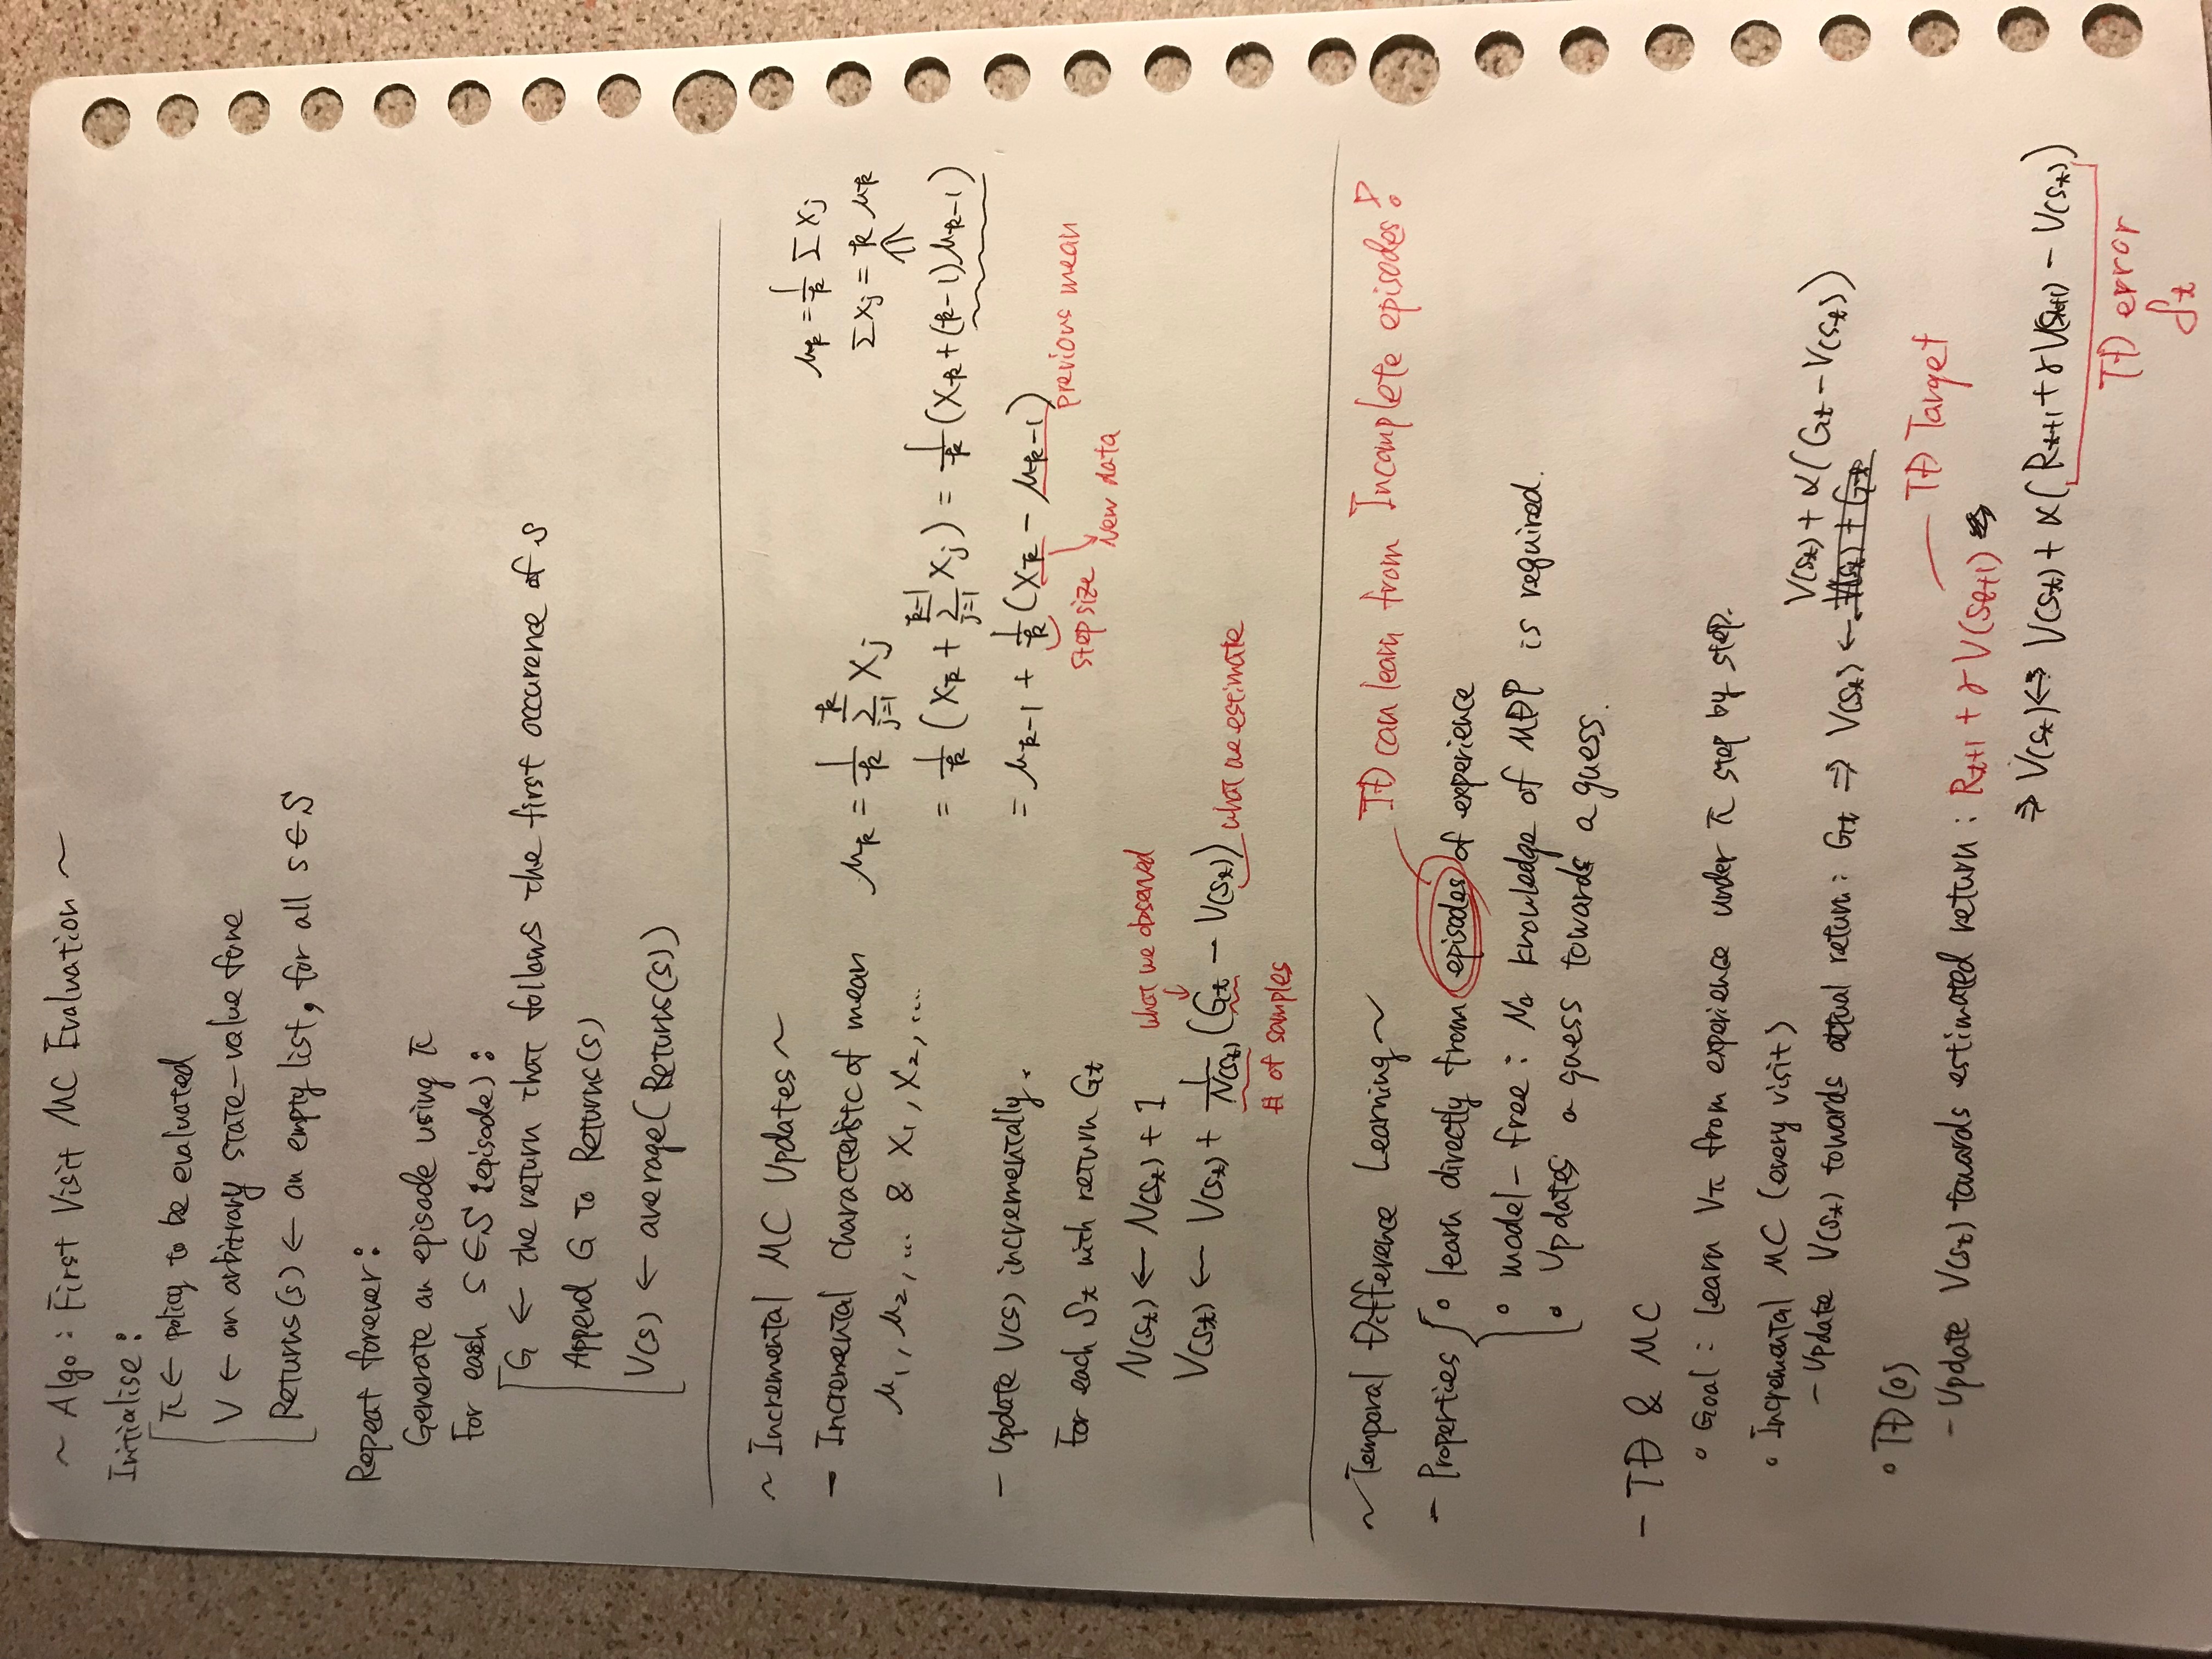 ~ Algo : First Visit MC Evaluation ~
Initialise :
π ← policy to be evaluated
V ← an arbitrary state-value func
Returns(s) ← an empty list, for all s ∈ S
Repeat forever :
Generate an episode using π
For each s ∈ S (episode) :
G ← the return that follows the first occurence of s
Append G to Returns(s)
V(s) ← average(Returns(s))
~ Incremental MC Updates ~
- Incremental characteristic of mean
μ₁, μ₂, ... & X₁, X₂, ....
μₖ = 1/k Σ_{j=1}^{k} Xⱼ
μₖ = 1/k Σ Xⱼ
Σ Xⱼ = k μₖ
⇑
= 1/k (Xₖ + Σ_{j=1}^{k-1} Xⱼ) = 1/k (Xₖ + (k-1)μₖ₋₁)
= μₖ₋₁ + 1/k (Xₖ - μₖ₋₁)
step size
New data
previous mean
- Update V(s) incrementally.
For each Sₜ with return Gₜ
N(Sₜ) ← N(Sₜ) + 1
what we observed
↓
V(Sₜ) ← V(Sₜ) + 1/N(Sₜ) (Gₜ - V(Sₜ)) what we estimate
# of samples
~ Temporal Difference Learning ~
TD can learn from Incomplete episodes!
- Properties { ∘ learn directly from episodes of experience
∘ model-free : No knowledge of MDP is required.
∘ Updates a guess towards a guess.
- TD & MC
∘ Goal : learn Vπ from experience under π step by step.
∘ Incremental MC (every visit)
V(Sₜ) + α(Gₜ - V(Sₜ))
- Update V(Sₜ) towards actual return : Gₜ ⇒ V(Sₜ) ← V(Sₜ) + Gₜ
∘ TD(0)
TD Target
- Update V(Sₜ) towards estimated return : Rₜ₊₁ + γV(Sₜ₊₁)
⇒ V(Sₜ) ↔ V(Sₜ) + α(Rₜ₊₁ + γV(Sₜ₊₁) - V(Sₜ))
TD error
δₜ